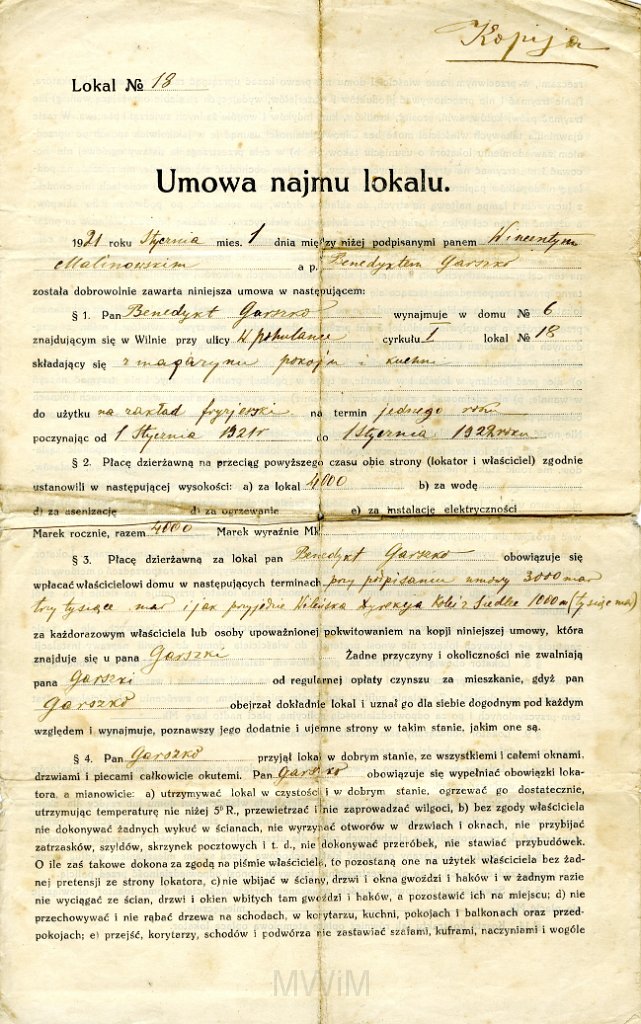 Kopija
Lokal № 18
Umowa najmu lokalu.
1921 roku Stycznia mies. 1 dnia między niżej podpisanymi panem Wincentym
Malinowskim a p. Benedyktem Garszko
została dobrowolnie zawarta niniejsza umowa w następującem:
§ 1. Pan Benedykt Garszko wynajmuje w domu № 6
znajdującym się w Wilnie przy ulicy W. Pohulance cyrkułu I lokal № 18
składający się z magazynu pokoju i kuchni
do użytku na zakład fryzjerski na termin jednego roku
poczynając od 1 Stycznia 1921 r do 1 Stycznia 1922 roku
§ 2. Płacę dzierżawną na przeciąg powyższego czasu obie strony (lokator i właściciel) zgodnie
ustanowili w następującej wysokości: a) za lokal 4000 b) za wodę
d) za asenizację d) za ogrzewanie e) za instalację elektryczności
Marek rocznie, razem 4000 Marek wyraźnie Mk.
§ 3. Płacę dzierżawną za lokal pan Benedykt Garszko obowiązuje się
wpłacać właścicielowi domu w następujących terminach przy podpisaniu umowy 3000 mar
trzy tysiące mar i jak przyjedzie Wileńska Dyrekcja Kolei z Siedlec 1000 m (tysiąc mar)
za każdorazowym właściciela lub osoby upoważnionej pokwitowaniem na kopji niniejszej umowy, która
znajduje się u pana Garszki Żadne przyczyny i okoliczności nie zwalniają
pana Garszki od regularnej opłaty czynszu za mieszkanie, gdyż pan
Garszko obejrzał dokładnie lokal i uznał go dla siebie dogodnym pod każdym
względem i wynajmuje, poznawszy jego dodatnie i ujemne strony w takim stanie, jakim one są.
§ 4. Pan Garszko przyjął lokal w dobrym stanie, ze wszystkiemi i całemi oknami,
drzwiami i piecami całkowicie okutemi. Pan Garszko obowiązuje się wypełniać obowiązki loka-
tora, a mianowicie: a) utrzymywać lokal w czystości i w dobrym stanie, ogrzewać go dostatecznie,
utrzymując temperaturę nie niżej 5° R., przewietrzać i nie zaprowadzać wilgoci, b) bez zgody właściciela
nie dokonywać żadnych wykuć w ścianach, nie wyrzynać otworów w drzwiach i oknach, nie przybijać
zatrzasków, szyldów, skrzynek pocztowych i t. d., nie dokonywać przeróbek, nie stawiać przybudówek.
O ile zaś takowe dokona za zgodą na piśmie właściciela, to pozostaną one na użytek właściciela bez żad-
nej pretensji ze strony lokatora, c) nie wbijać w ściany, drzwi i okna gwoździ i haków i w żadnym razie
nie wyciągać ze ścian, drzwi i okien wbitych tam gwoździ i haków, a pozostawić ich na miejscu; d) nie
przechowywać i nie rąbać drzewa na schodach, w korytarzu, kuchni, pokojach i balkonach oraz przed-
pokojach; e) przejść, korytarzy, schodów i podwórza nie zastawiać szafami, kuframi, naczyniami i wogóle
MWiM